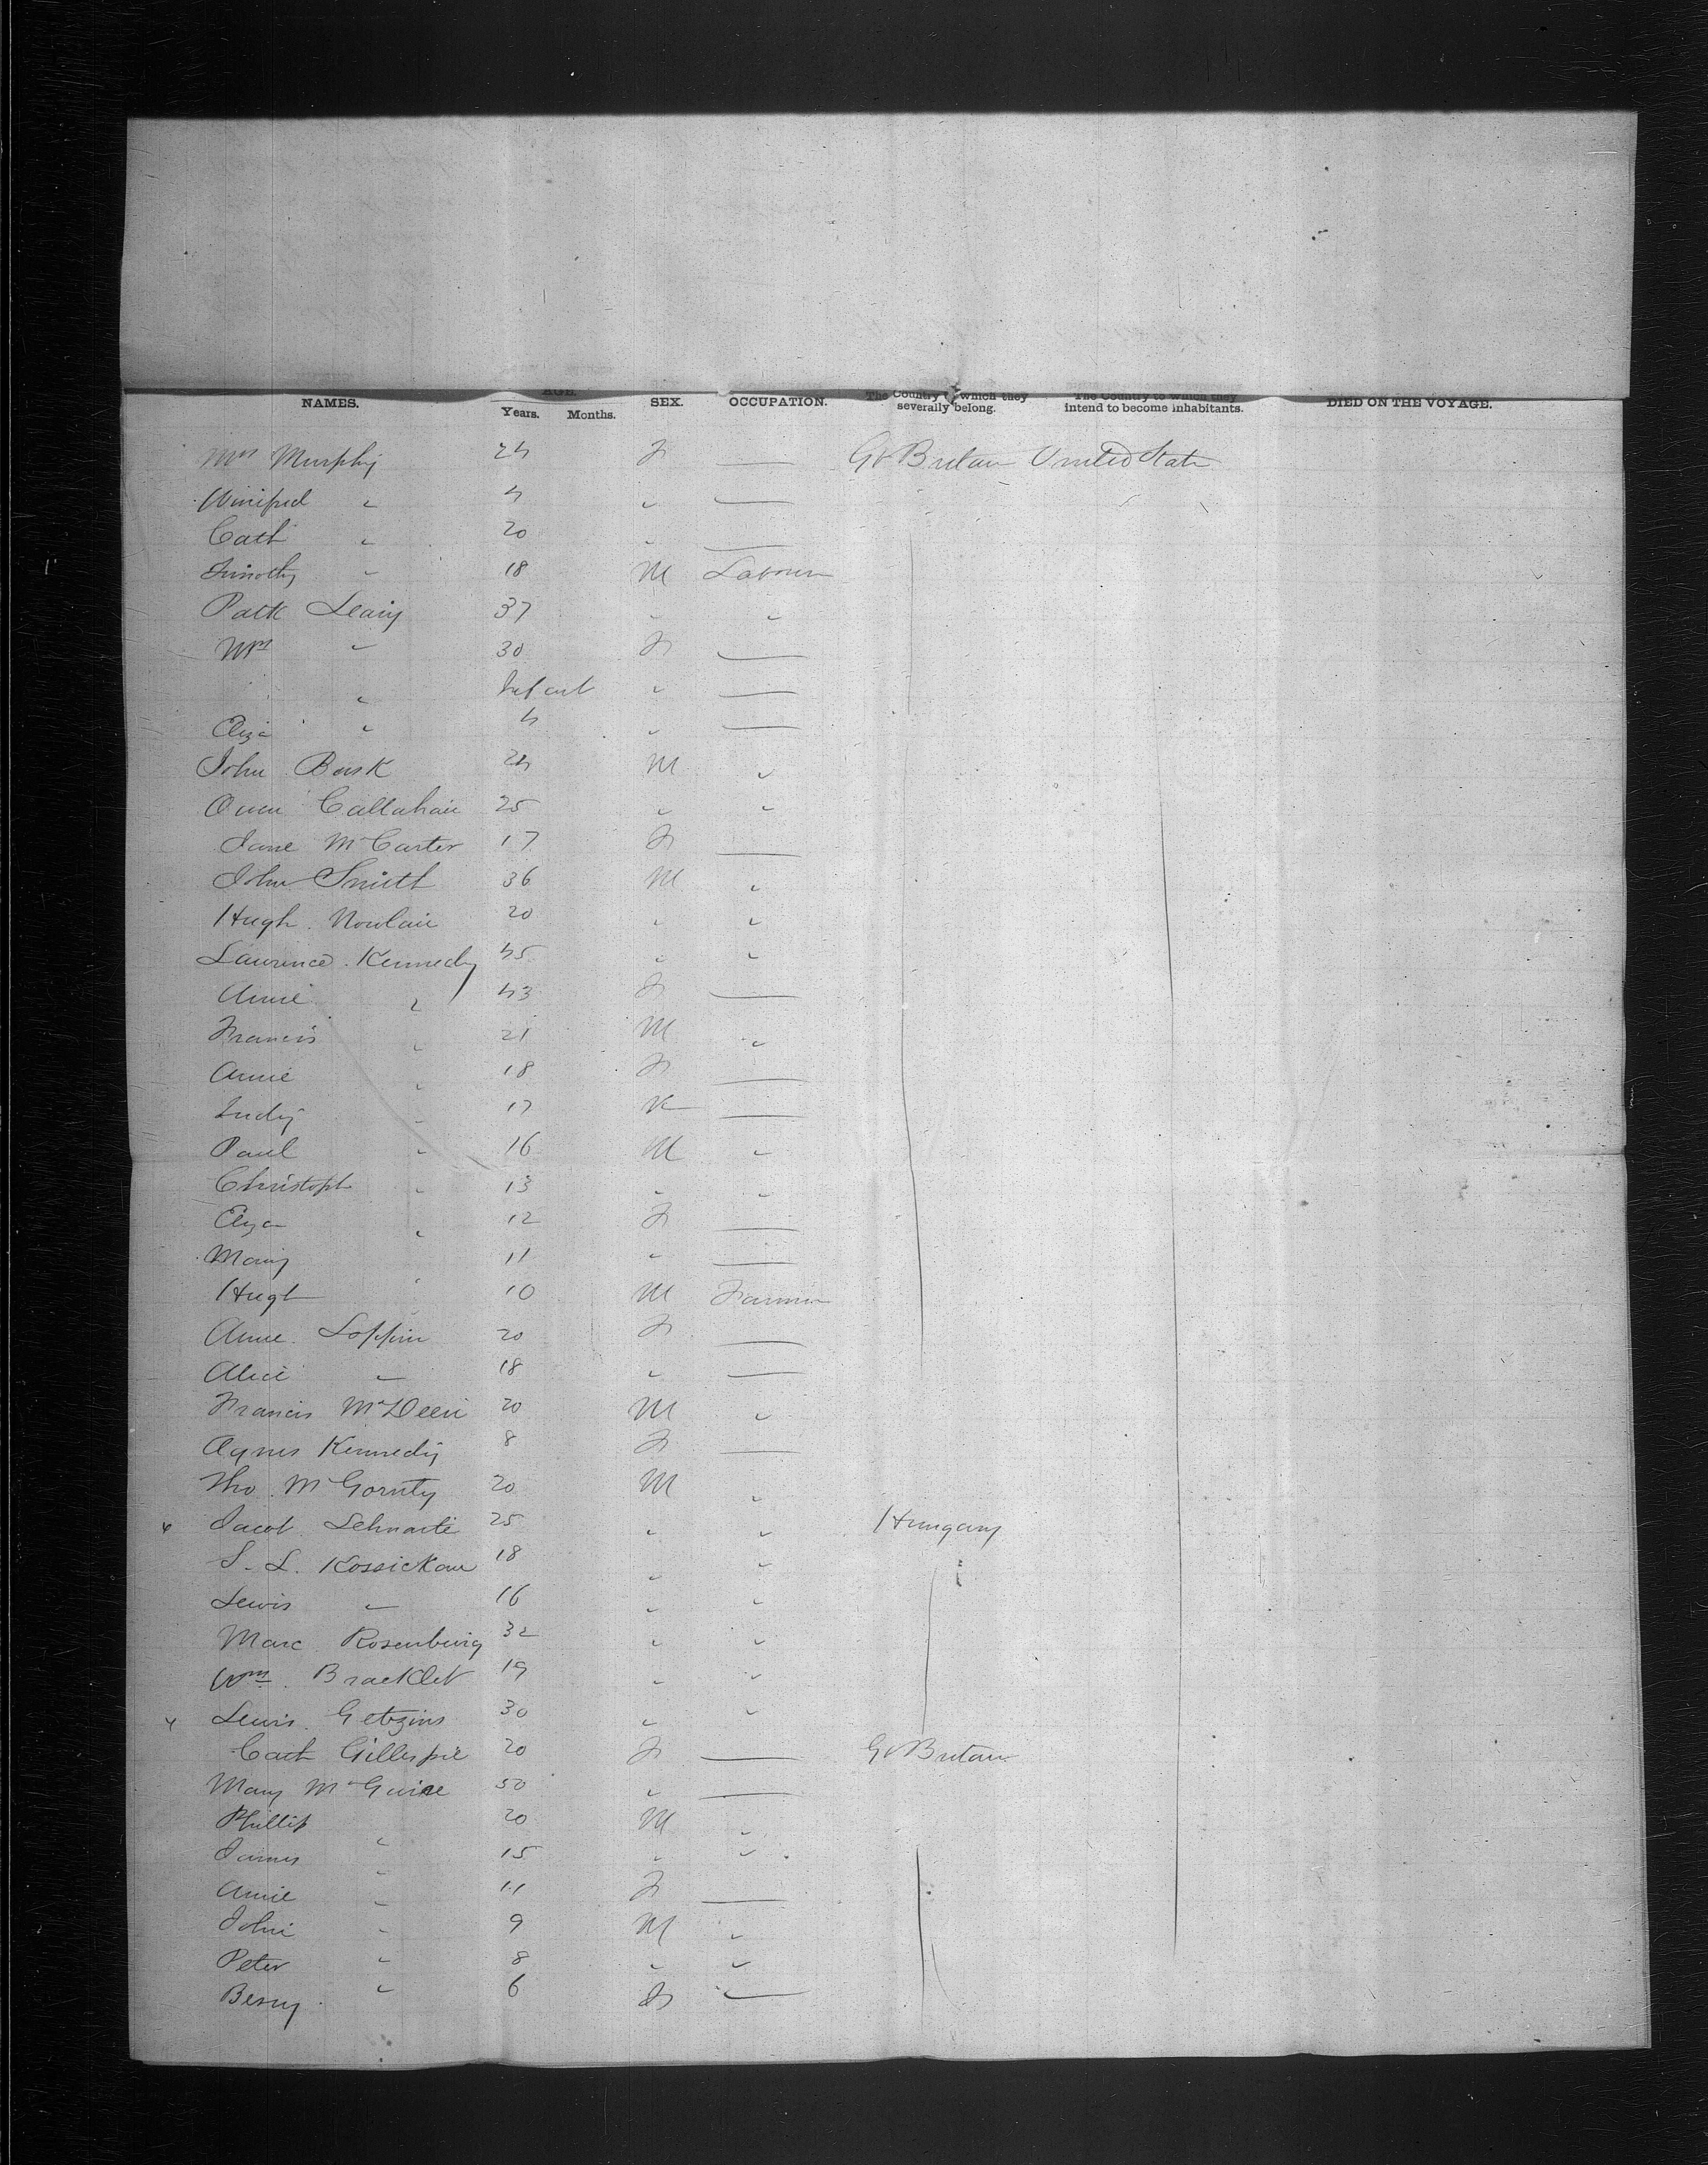 NAMES. AGE. Years. Months. SEX. OCCUPATION. The Country which they severally belong. The Country to which they intend to become inhabitants. DIED ON THE VOYAGE.
Mrs Murphy 24 F — Gt Britain United State
Winifred " 4 " —
Cath " 20 " —
Timothy " 18 M Labourer
Patk Leary 37 " "
Mrs " 30 F —
" Infant " —
Eliza " 4 " —
John 24 M "
Owen Callahan 25 " "
Jane McCarter 17 F —
John Smith 36 M "
Hugh Nowlan 20 " "
Laurence Kennedy 45 " "
Annie " 43 F —
Francis " 21 M "
Annie " 18 F —
Judy " 17 —
Paul " 16 M "
Christoph " 13 " "
Eliza " 12 F —
Mary 11 " —
Hugh " 10 M Farmer
Anne 20 F —
Alice " 18 " —
Francis 20 M "
Agnes Kennedy 8 F —
Tho. 20 M "
Jacob 25 " " Hungary
S. L. Kossickau 18 " "
Lewis " 16 " "
Marc Rosenburg 32 " "
Wm. Bracklet 19 " "
Lewis Getzins 30 " "
Cath Gillespie 20 F — Gt Britain
Mary McGuire 50 " —
Phillip " 20 M "
James " 15 " "
Annie " 11 F —
John " 9 M "
Peter " 8 " "
Bessy " 6 F —